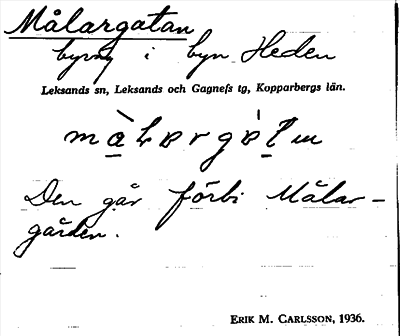 Målargatan
byväg i byn Heden
Leksands sn, Leksands och Gagnefs tg, Kopparbergs län.
Den går förbi Målar-
gården.
ERIK M. CARLSSON, 1936.